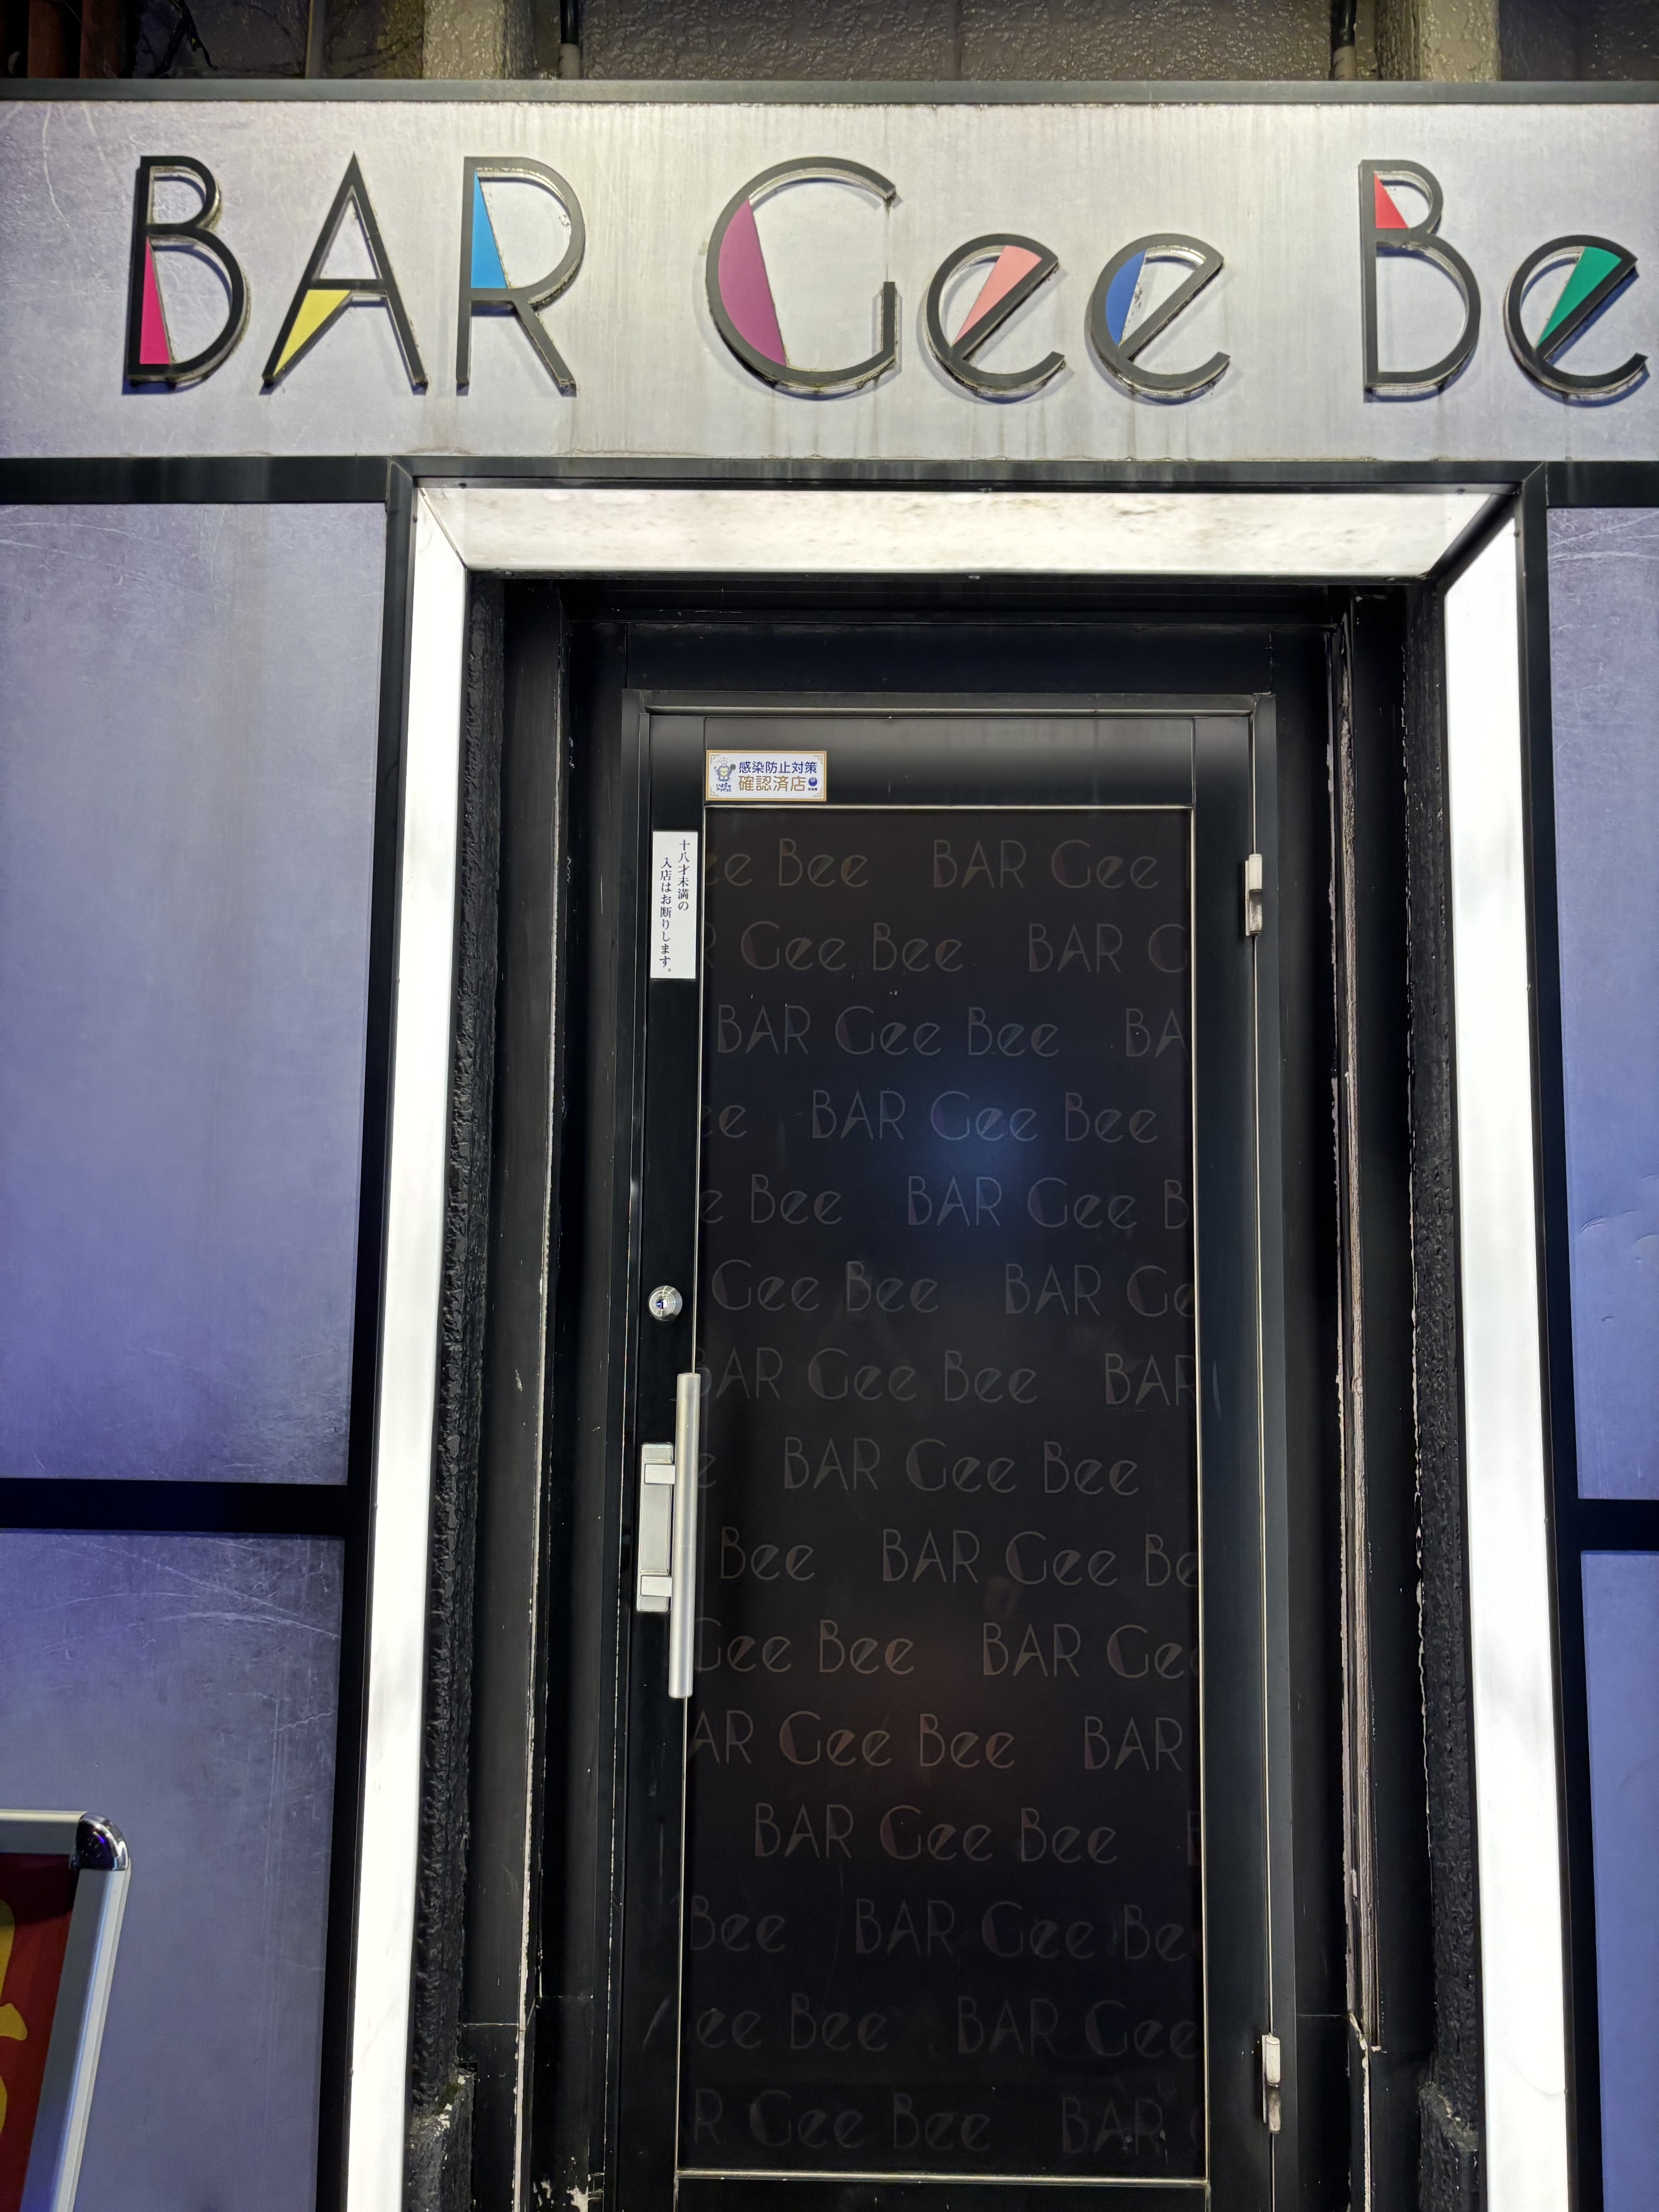 BAR Gee Be
感染防止対策
確認済店
十八才未満の
入店はお断りします。
ee Bee BAR Gee
R Gee Bee BAR G
BAR Gee Bee BA
ee BAR Gee Bee
e Bee BAR Gee B
Gee Bee BAR Ge
BAR Gee Bee BAR
e BAR Gee Bee
Bee BAR Gee Be
Gee Bee BAR Gee
AR Gee Bee BAR
BAR Gee Bee B
Bee BAR Gee Be
ee Bee BAR Gee
R Gee Bee BAR